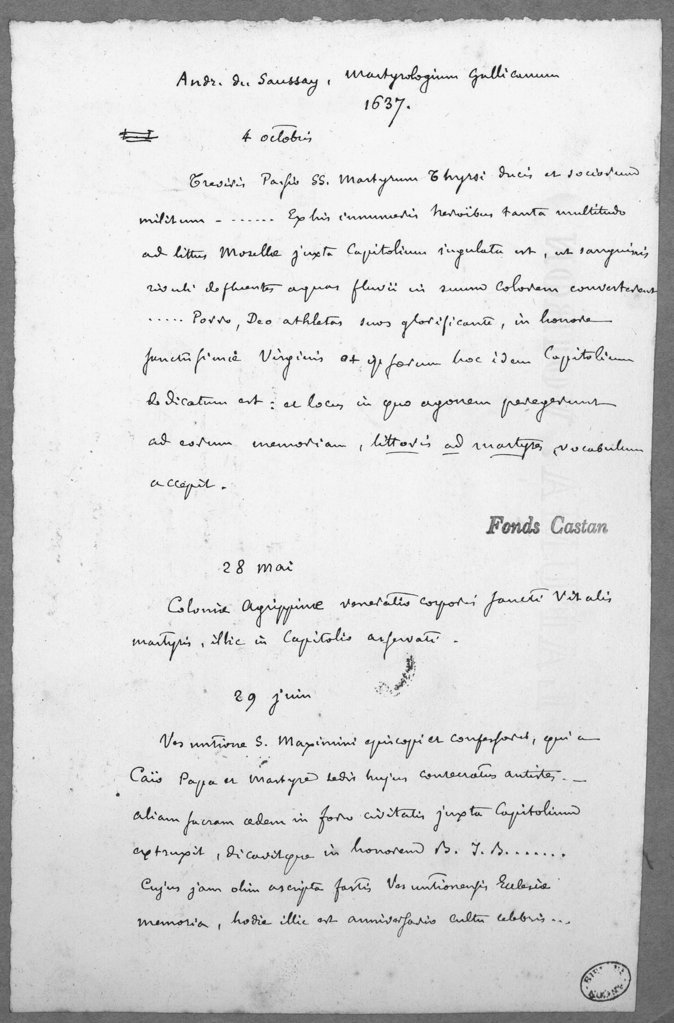 Andr. du Saussay, Martyrologium Gallicanum
1637.
4 octobris
Treviris Passio SS. Martyrum Thyrsi ducis et sociorum
militum - ...... Ex his innumeris heroïbus tanta multitudo
ad littus Mosellæ juxta Capitolium jugulata est, ut sanguinis
rivuli defluentes aquas fluvii in suum colorem converterent
..... Porro, Deo athletas suos glorificante, in honore
sanctissimæ Virginis et ipsorum hoc idem Capitolium
dedicatum est : et locus in quo agonem peregerunt
ad eorum memoriam, littoris ad martyres vocabulum
accepit.
Fonds Castan
28 mai
Coloniæ Agrippinæ veneratio corporis sancti Vitalis
martyris, illic in Capitolio asservati.
29 juin
Vesuntione S. Maximini episcopi et confessoris, qui a
Caïo Papa et Martyre sedis hujus consecratus antistes -
aliam sacram ædem in foro civitatis juxta Capitolium
extruxit, dicavitque in honorem B. J. B.......
Cujus jam olim ascripta fastis Vesuntionensis Ecclesiæ
memoria, hodie illic est anniversario cultu celebris...